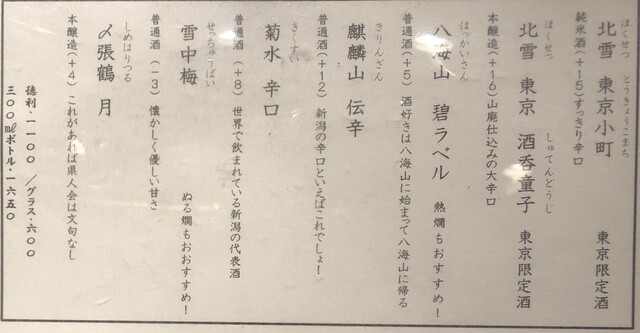 ほくせつ とうきょうこまち
北雪 東京小町 東京限定酒
純米酒(+15)すっきり辛口
ほくせつ しゅてんどうじ
北雪 東京 酒呑童子 東京限定酒
本醸造(+16)山廃仕込みの大辛口
はっかいさん
八海山 碧ラベル 熱燗もおすすめ!
普通酒(+5) 酒好きは八海山に始まって八海山に帰る
きりんざん
麒麟山 伝辛
普通酒(+12) 新潟の辛口といえばこれでしょー
きくすい
菊水 辛口
普通酒(+8) 世界で飲まれている新潟の代表酒
せっちゅうばい
雪中梅 ぬる燗もおおすすめ!
普通酒(-3) 懐かしく優しい甘さ
しめはりつる
〆張鶴 月
本醸造(+4) これがあれば県人会は文句なし
徳利・1100 /グラス・600
300mlボトル・1650